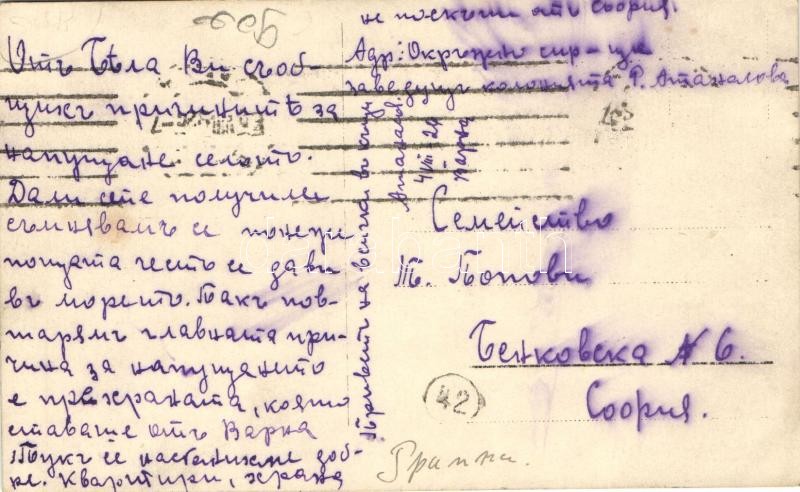 Отъ Бѣла Ви съоб-
щихъ причинитѣ за
напущане селото.
Дали сте получили
съмнявамъ се понеже
пощата често се дави
въ морето. Пакъ пов-
тарямъ главната при-
чина за напущането
е прехраната, която
ставаше отъ Варна
Тукъ се настанихме доб-
ре. Квартири, храна
не по отъ София.
Адр: Окръжно
заведующъ колонията Р. Атанасова
Привѣтъ на всички въ
Атанасов
4 VIII 20
Варна
Семейство
Т. Попови
Бенковска № 6.
София.
42